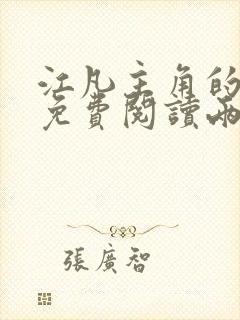 江凡主角的
免費閱讀兩
張廣智